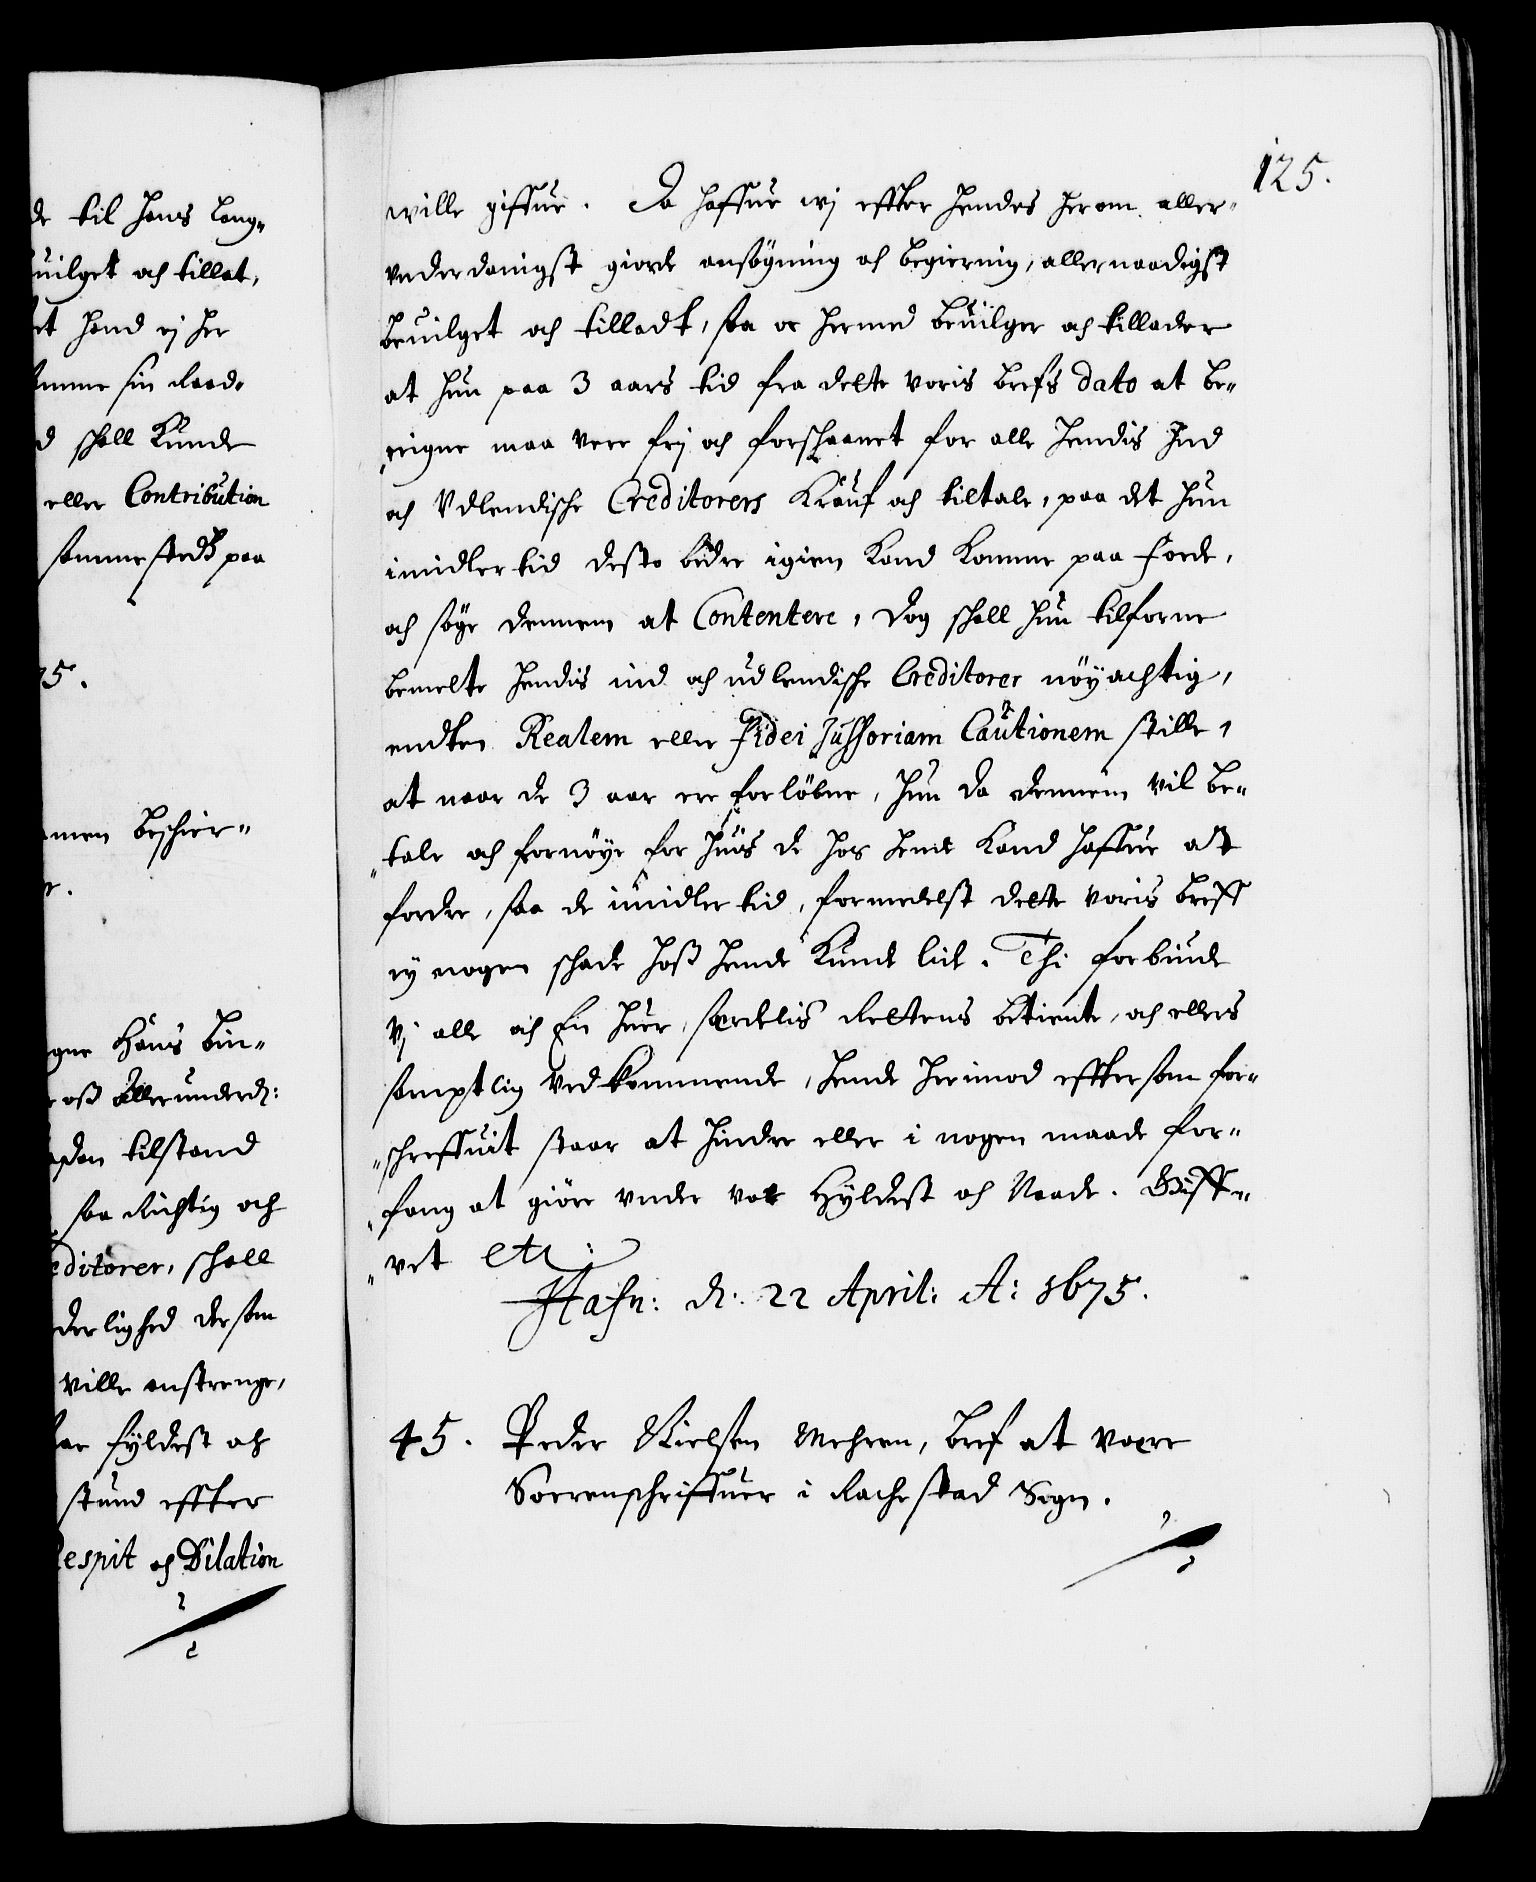 de til hans lang-
uilget och tillat,
et hand ej her
samme sin Raad.
d schall Kunde
eller Contribution
sammestedtz paa
75.
amen beschier-
r.
gne Hans bin-
oss Allerunderd:
sdan tilstand
saa Richtig och
editorer, schall
derlighed dersom
ville anstrenge,
har fyldest och
stund effter
Respit och Dilation
125.
wille giffue. Da haffue wj effter hendes herom aller-
underdanigst giorde ansögning och begiering, allernaadigst
beuilget och tilladt, saa oc hermed beuilger och tillader
at hun paa 3 aars tid fra dette voris brefs dato at be-
reigne maa vere frj och forschaanet for alle hendis Ind
och Udlendische Creditorers Krauf och tiltale, paa det hun
imidlertid desto bedre igien Kand Komme paa fode,
och söge dennem at Contentere, dog schall hun tilforne
bemelte hendis ind och udlendische Creditorer nöyachtig,
endten Realem eller Fidei Jussoriam Cautionem stille,
at naar de 3 aar ere forlöbne, hun da dennem vil be-
tale och fornöye for huis de hos hende Kand haffue at
fordre, saa de imidlertid, formedelst dette voris breff
ej nogen schade hoss hende Kunde lide. Thi forbiude
Vj alle och En huer, særdelis Rettens betiente, och ellers
samptlig vedkommende, hende herimod efftersom for-
schreffuit staar at hindre eller i nogen maade for-
fang at giöre under vor Hyldest och Naade. Giff-
vet etc:
Hafn: d. 22 April: A: 1675.
45. Peder Nielsen Mehren, bref at være
Sorenschriffuer i Rachestad Sogn.